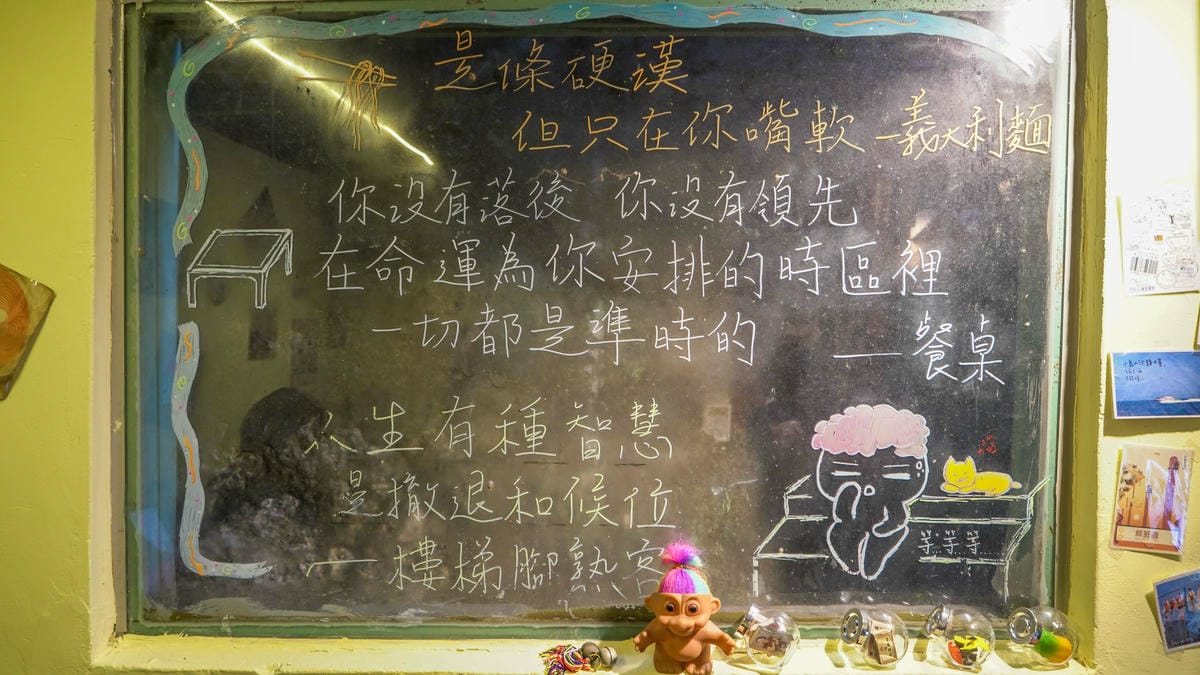 是條硬漢
但只在你嘴軟 一義大利麵
你沒有落後 你沒有領先
在命運為你安排的時區裡
一切都是準時的 — 餐桌
人生有種智慧
是撤退和候位
— 樓梯腳熟客
等..等..等...